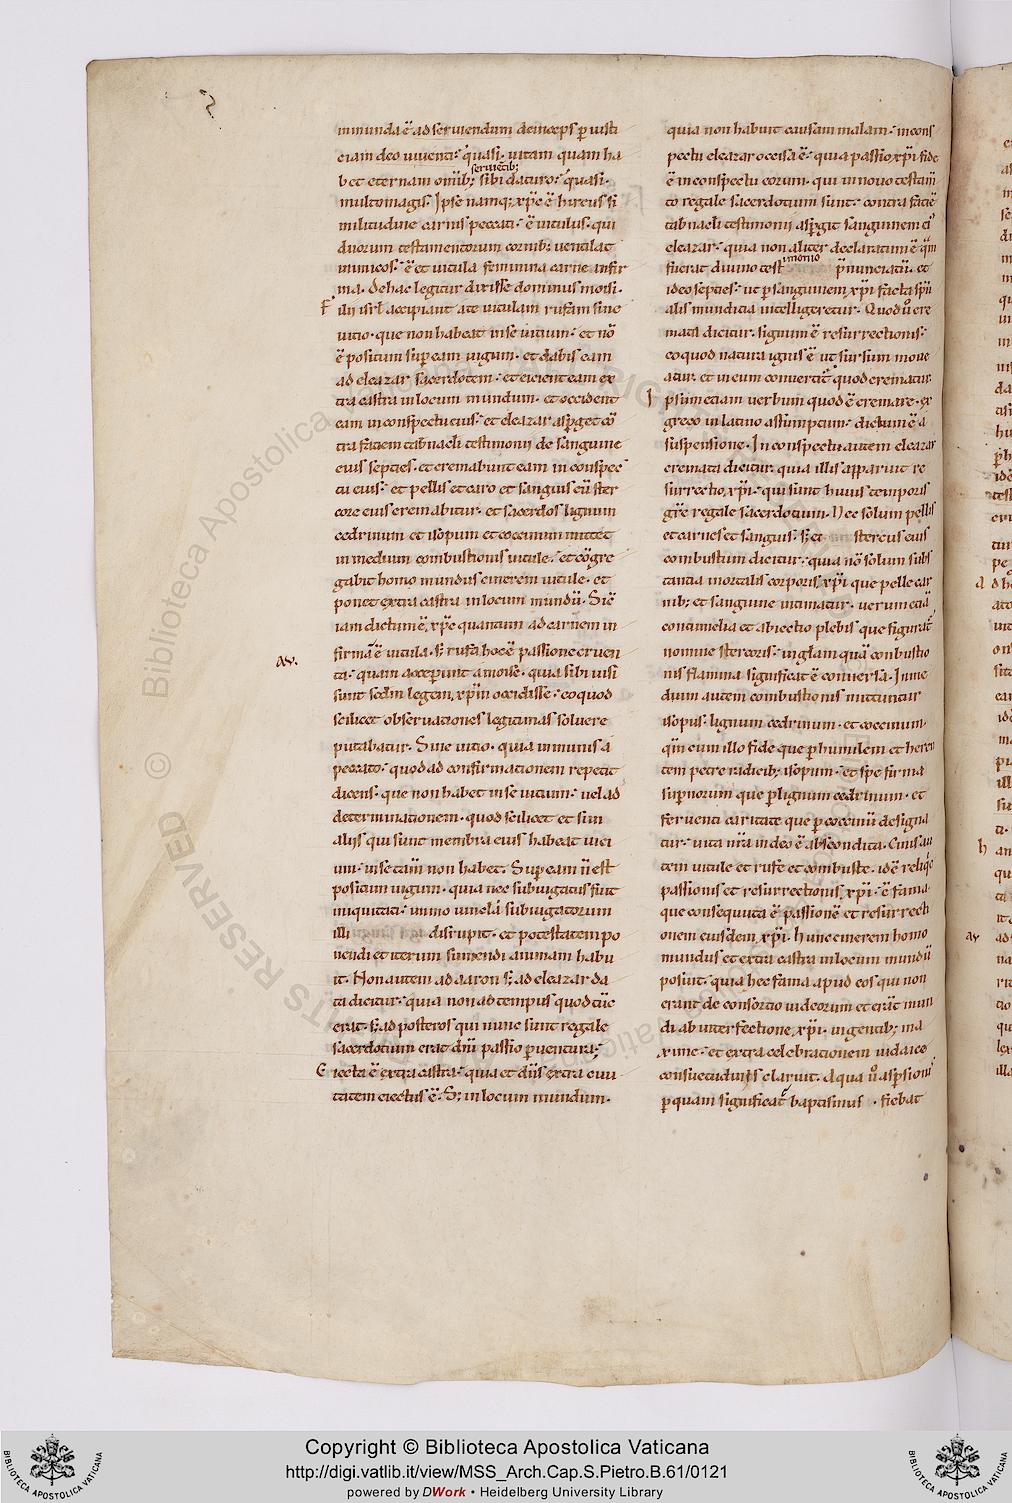 inmunda ē ad seruiendum deinceps ꝑ iusti
ciam deo uiuenti· quasi· uitam quam ha
bet eternam omīb; seruiētib; sibi daturo· quasi·
multo magis· Ipse namq; xp̄c ē hircus si
militudine carnis peccati· ē uitulus· qui
duorum testamentorum cornib; uentilat
inimicos· ē et uitula feminina carne infir
ma· de hac legitur dixisse dominus moisi·
Filii isrl̄ accipiant a te uitulam rufam sine
uitio· que non habeat in se uitium· et nō
ē positum suꝑ eam iugum· et dabis eam
ad eleazar sacerdotem· et eicient eam ex
tra castra in locum mundum· et occident
eam in conspectu eius· et eleazar asꝑget cō
tra faciem tabnacli testimonii de sanguine
eius septies· et cremabunt eam in conspec
tu eius· et pellis et caro et sanguis cū ster
core eius cremabitur· et sacerdos lignum
cedrinum et isopum et coccinum mittet
in medium combustionis uitule· et cōgre
gabit homo mundus cinerem uitule· et
ponet extra castra in locum mundū· Sic
iam dictum ē, xp̄c quantum ad carnem in
firma ē uitula· s; rufa hoc ē passione cruen
ta· quam acceperunt a moise· quia sibi uisi
sunt scdm legem, xp̄m occidisse· eo quod
scilicet obseruationes legitimas soluere
putabatur· Sine uitio· quia inmunis a
peccato· quod ad confirmationem repetit
dicens· que non habet in se uitium· uel ad
determinationem· quod scilicet et si in
aliis qui sunt membra eius habeat uici
um· in se tam̄ non habet· Suꝑ eam n̄ est
positum iugum· quia nec subiugatus fuit
iniquitati· immo uincla subiugatorum
illi disrupit· et potestatem po
nendi et iterum sumendi animam habu
it· Non autem ad aaron s; ad eleazar da
ta dicitur· quia non ad tempus quod tūc
erat· s; ad posteros qui nunc sunt regale
sacerdotium erat dn̄i passio ꝑuentura;
Eiecta ē extra castra· quia et dn̄s extra ciui
tatem eiectus ē· S; in locum mundum·
av.
quia non habuit causam malam· in cons
pectu eleazar occisa ē· quia passio, xp̄i fide
ē in conspectu eorum· qui in nouo testam̄
to regale sacerdotium sunt· contra faciē
tabnacli testimonii asꝑgit sanguinem ei'
eleazar· quia non aliter declaratum ē q̄m
fuerat diuino testimonio p̄nunciatū· et
ideo septies· ut ꝑ sanguinem, xp̄i facta spīri
alis mundicia intelligeretur· Quod ū cre
mata dicitur· signum ē resurrectionis·
eo quod natura ignis ē ut sursum moue
atur· et in eum conuertit quod crematur·
Ipsum etiam uerbum quod ē cremare· ex
greco in latino assumptum· dictum ē a
suspensione· In conspectu autem eleazar
cremata dicitur· quia illis apparuit re
surrectio, xp̄i· qui sunt huius temporis
gr̄e regale sacerdotium· Nec solum pellis
et carnes et sanguis· s; et stercus eius
combustum dicitur· quia nō solum subs
tantia mortalis corporis, xp̄i que pelle car
nib; et sanguine intimatur· uerum etiā
contumelia et abiectio plebis que figurat̄
nomine stercoris· in gl̄am quā conbustio
nis flamma significat ē conuersa· In me
dium autem combustionis mittuntur
isopus· lignum cedrinum· et coccinum·
qm̄ cum illo fide que ꝑ humilem et heren
tem petre radicib; isopum· et spe firma
suꝑnorum que ꝑ lignum cedrinum· et
feruenti caritate que ꝑ coccinū designa
tur· uita nr̄a in deo ē abscondita· Cinis au
tem uitule et rufe et combuste· idē reliqe
passionis et resurrectionis, xp̄i· ē fama·
que consequuta ē passionē et resurrecti
onem eiusdem, xp̄i· hunc cinerem homo
mundus et extra castra in locum mundū
posuit· quia hec fama apud eos qui non
erant de consortio iudeorum et erāt mun
di ab interfectione, xp̄i· in gentib; ma
xime· et extra celebrationem iudaice
consuetudinis claruit· Aqua ū asꝑsionis
ꝑ quam significat̄ baptismus · fiebat
Copyright © Biblioteca Apostolica Vaticana
http://digi.vatlib.it/view/MSS_Arch.Cap.S.Pietro.B.61/0121
powered by DWork • Heidelberg University Library